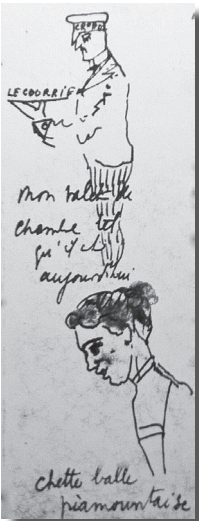 LE COURRIE
mon valet de
chambre tel
qu'il est
aujourd'hui
chette balle
piamountaise